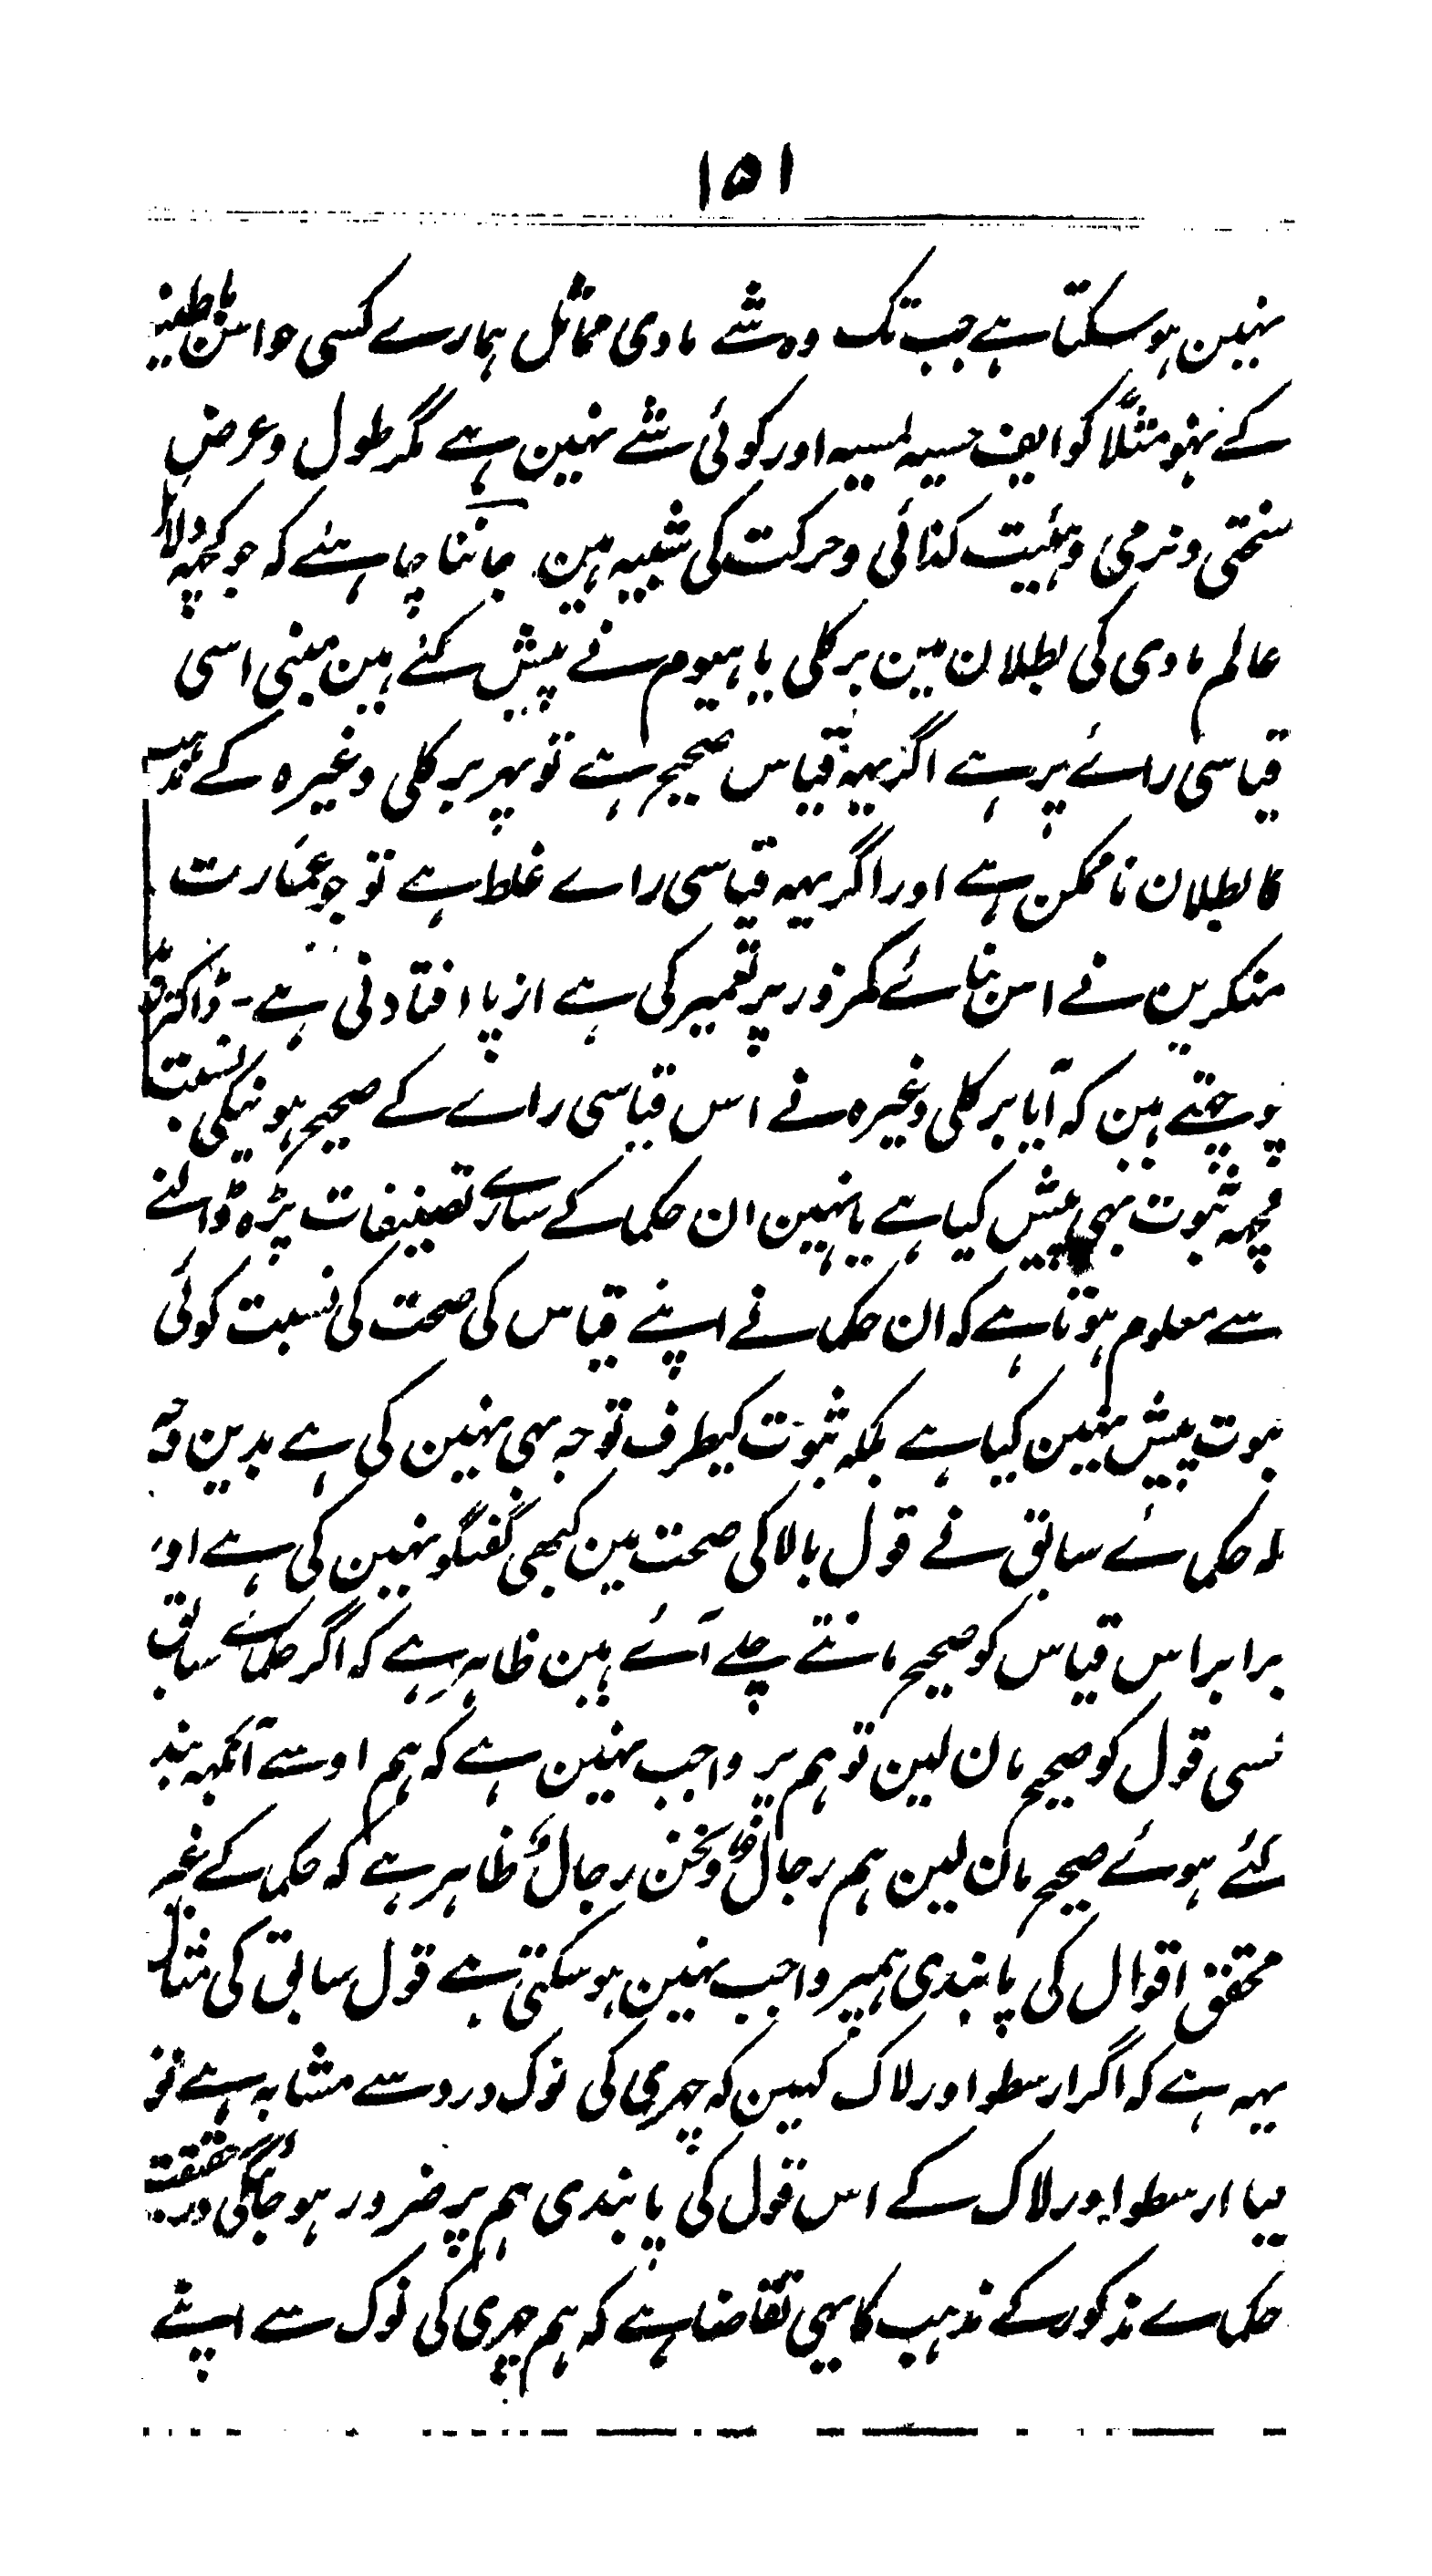 ۱۵۱
نہین ہو سکتا ہے جب تک وہ شے مادی مماثل ہمارے کسی حواس باطنیہ
کے نہو مثلاً کوایف حسیہ لمسیہ اور کوئی شے نہین ہے مگر طول و عرض
سختی و نرمی و ہئیت کذائی و حرکت کی شبیہ ہین جاننا چاہئے کہ جو کچہہ دلائل
عالم مادی کی بطلان مین برکلی یا ہیوم نے پیش کئے ہین مبنی اسی
قیاسی رائے پر ہے اگر یہہ قیاس صحیح ہے تو پہر برکلی وغیرہ کے مذہب
کا بطلان ناممکن ہے اور اگر یہہ قیاسی راے غلط ہے تو جو عمارت
منکرین نے اس بنائے کمزور پر تعمیر کی ہے از پا افتادنی ہے - ڈاکٹر
پوچھتے ہین کہ آیا برکلی وغیرہ نے اس قیاسی راے کے صحیح ہونیکی نسبت
کچہہ ثبوت بہی پیش کیا ہے یا نہین ان حکما کے سارے تصنیفات پڑہ ڈالنے
سے معلوم ہوتا ہے کہ ان حکما نے اپنے قیاس کی صحت کی نسبت کوئی
ثبوت پیش نہین کیا ہے بلکہ ثبوت کیطرف توجہ بہی نہین کی ہے بدین وجہ
کہ حکمائے سابق نے قول بالا کی صحت مین کبھی گفتگو نہین کی ہے اور
برابر اس قیاس کو صحیح مانتے چلے آئے ہین ظاہر ہے کہ اگر حکمائے سابق
کسی قول کو صحیح مان لین تو ہم پر واجب نہین ہے کہ ہم اوسے آنکہہ بند
کئے ہوئے صحیح مان لین ہم رجال و نحن رجال ظاہر ہے کہ حکما کے غیر
محقق اقوال کی پابندی ہمپر واجب نہین ہو سکتی ہے قول سابق کی مثال
یہہ ہے کہ اگر ارسطو اور لاک کہین کہ چہری کی نوک درد سے مشابہ ہے تو
کیا ارسطو اور لاک کے اس قول کی پابندی ہم پر ضرور ہو جائگی درحقیقت
حکماے مذکور کے مذہب کا یہی تقاضا ہے کہ ہم چہری کی نوک سے اپنے